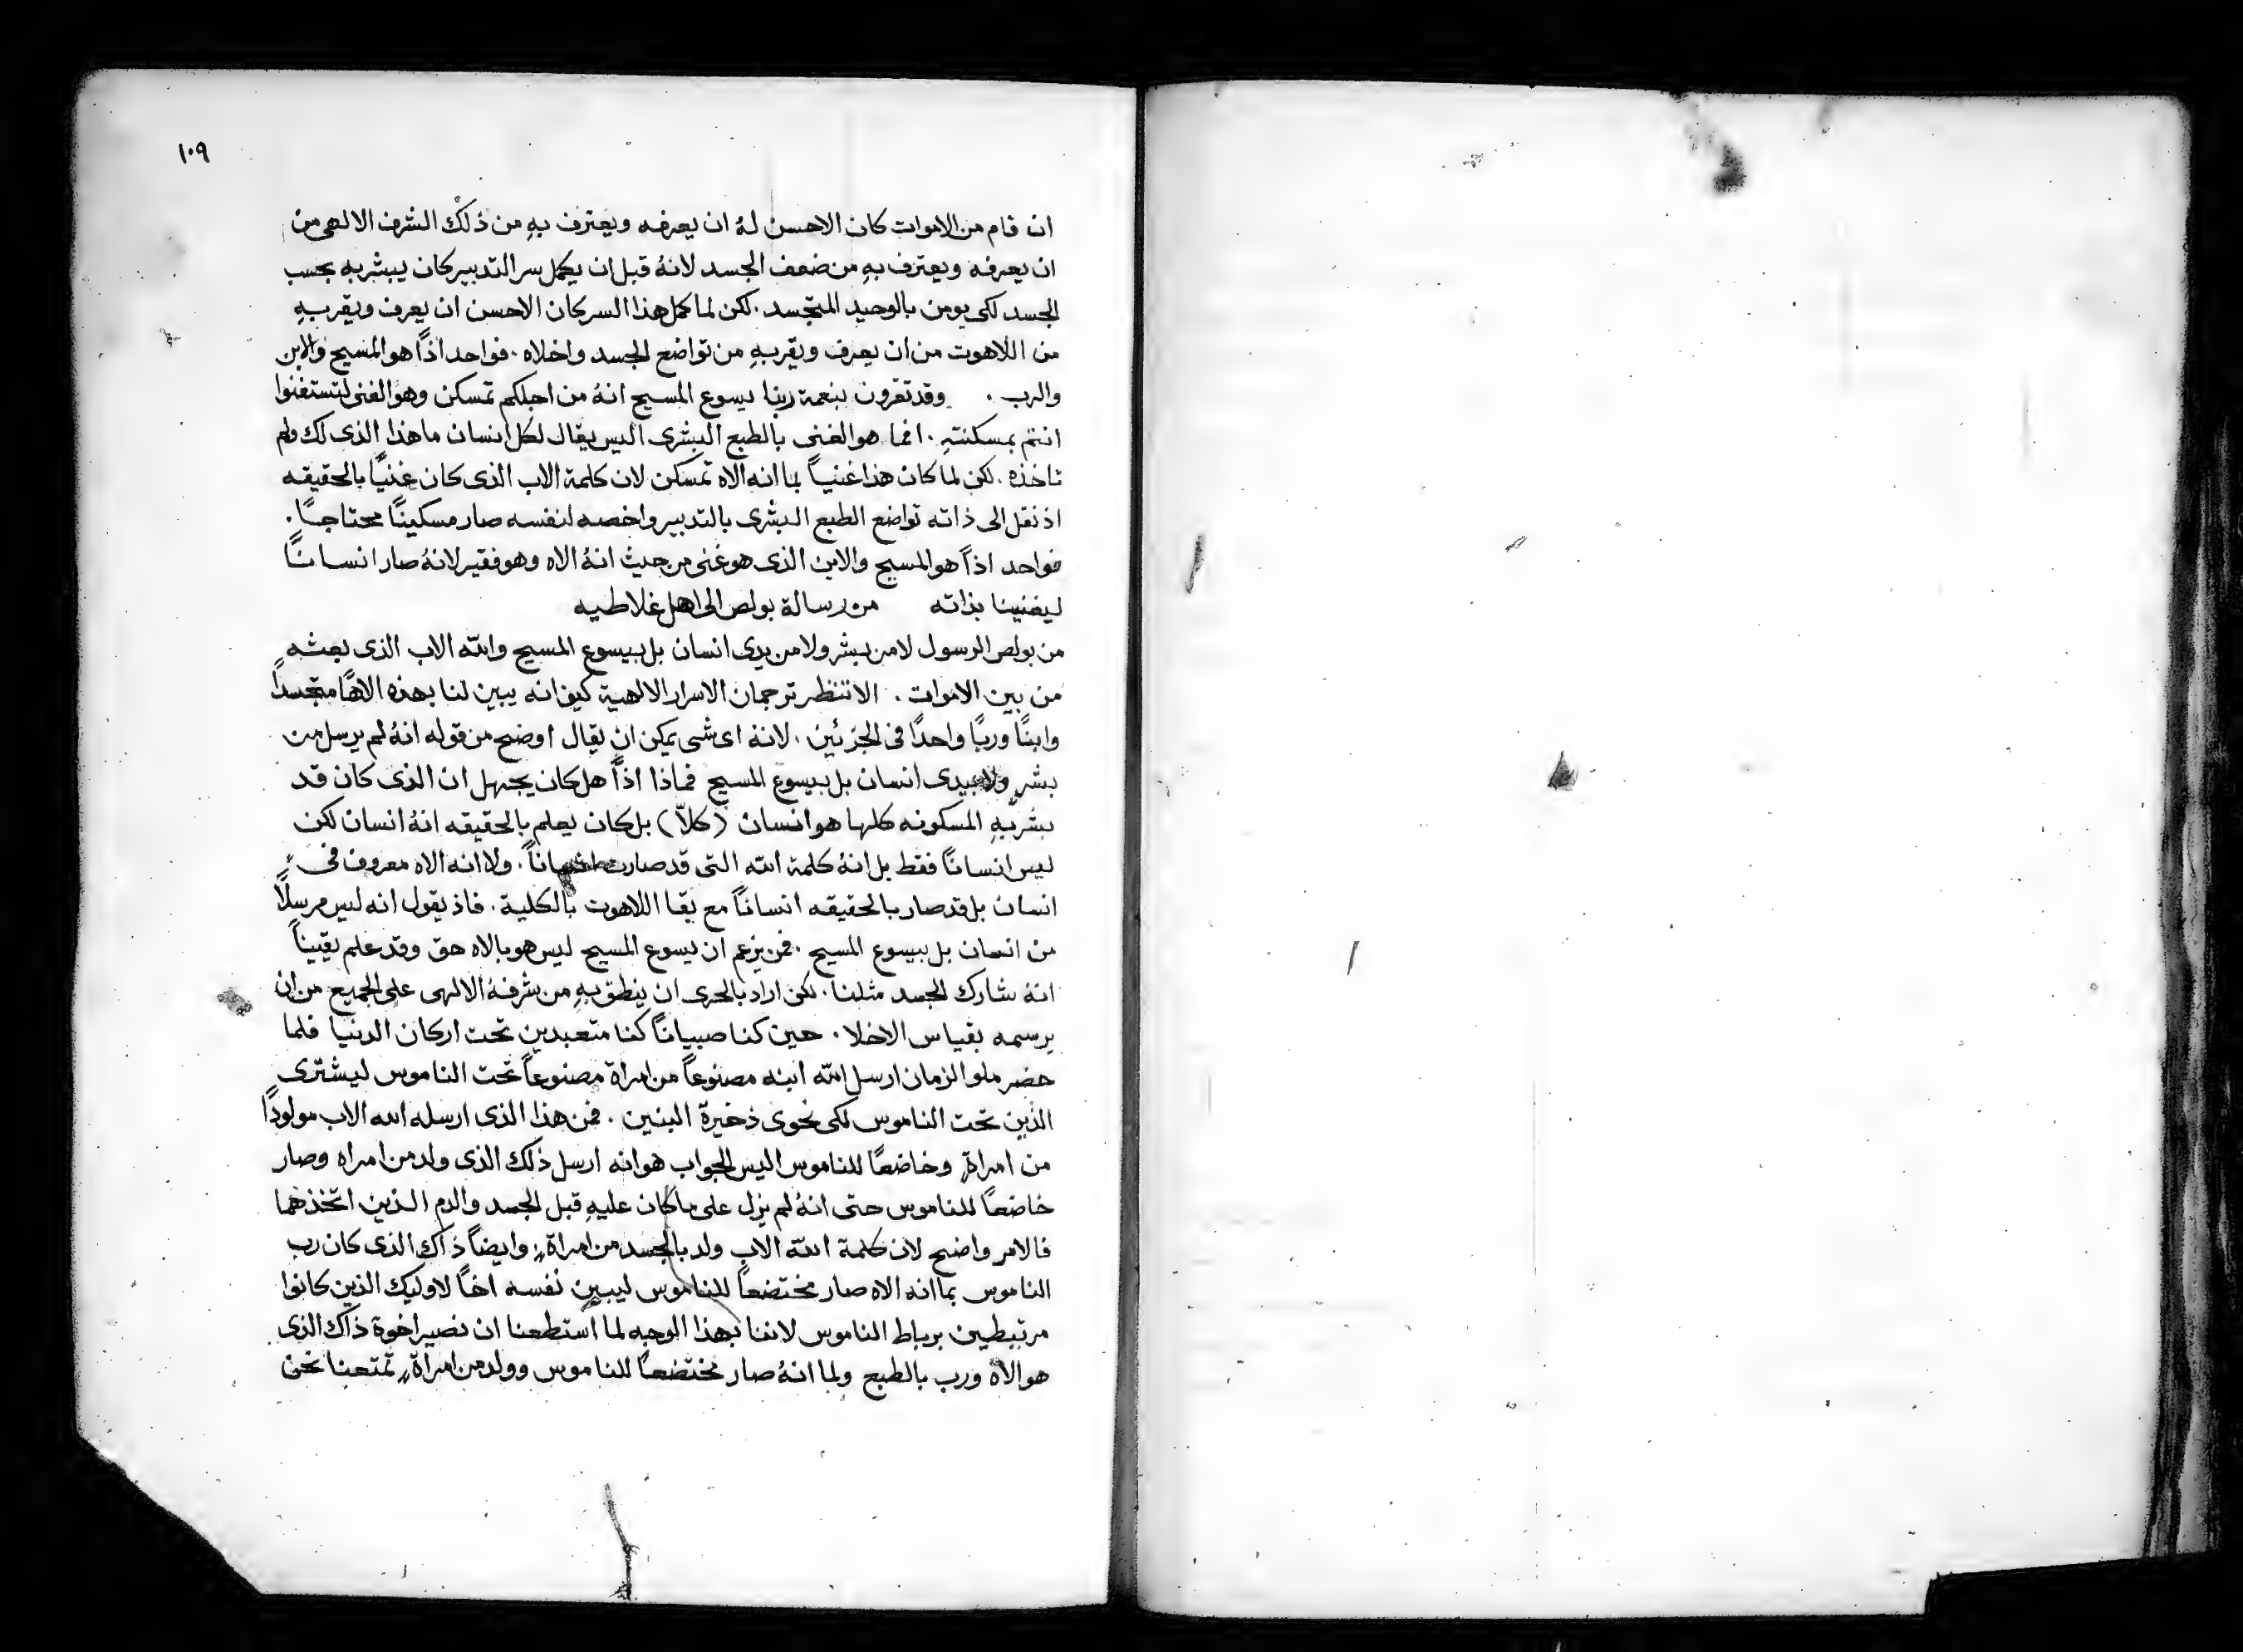 ١٠٩
ان قام من الاموات كان الاحسن لهُ ان يعرفه ويعترف بهِ من ذلك الشرف الالهى من
ان يعرفه ويعترف بهِ من ضعف الجسد لانهُ قبل ان يكمل سر التدبير كان يبشر به بحسب
الجسد لكى يومن بالوحيد المتجسد . لكن لما كمل هذا السر كان الاحسن ان يعرف ويقر بهِ
من اللاهوت من ان يعرف ويقر بهِ من تواضع الجسد واخلاه . فواحد اذاً هو المسيح والابن
والرب . وقد تعرفون بنعمة ربنا يسوع المسيح انهُ من اجلكم تمسكن وهو الغنى لتستغنوا
انتم بمسكنتهِ . افما هو الغنى بالطبع البشرى اليس يقال لكل انسان ما هذا الذى لك ولم
تاخذه . لكن لما كان هذا غنياً بما انه الاه تمسكن لان كلمة الاب الذى كان غنيًا بالحقيقه
اذ نقل الى ذاته تواضع الطبع البشرى بالتدبير واخصه لنفسه صار مسكينًا محتاجًا .
فواحد اذاً هو المسيح والابن الذى هو غنى من حيث انهُ الاه وهو فقير لانهُ صار انسانًا
ليغنينا بذاته من رسالة بولص الى اهل غلاطيه
من بولص الرسول لا من بشر ولا من يدى انسان بل بيسوع المسيح والله الاب الذى بعثه
من بين الاموات . الا تنظر ترجمان الاسرار الالهية كيف انه يبين لنا بهذه الاهًا متجسداً
وابنًا وربًا واحدًا فى الجزئين . لانهُ اى شى يمكن ان يقال اوضح من قوله انهُ لم يرسل من
بشر ولا بيدى انسان بل بيسوع المسيح فماذا اذاً هل كان يجهل ان الذى كان قد
بشر بهِ المسكونه كلها هو انسان (كلاّ) بل كان يعلم بالحقيقه انهُ انسان لكن
ليس انسانًا فقط بل انهُ كلمة الله التى قد صارت انساناً . ولا انه الاه معروف فى
انسان بل قد صار بالحقيقه انساناً مع بقا اللاهوت بالكلية . فاذ يقول انه ليس مرسلاً
من انسان بل بيسوع المسيح . فمن يزعم ان يسوع المسيح ليس هو بالاه حق وقد علم يقيناً
انهُ شارك الجسد مثلنا . لكن اراد بالحرى ان ينطق بهِ من شرفهُ الالهى على الجميع من ان
يرسمه بقياس الاخلا . حين كنا صبياناً كنا متعبدين تحت اركان الدنيا فلما
حضر ملو الزمان ارسل الله ابنه مصنوعاً من امراة مصنوعاً تحت الناموس ليشترى
الذين تحت الناموس لكى نحوى ذخيرة البنين . فمن هذا الذى ارسله الله الاب مولودًا
من امراةٍ وخاضعًا للناموس اليس الجواب هو انه ارسل ذلك الذى ولد من امراه وصار
خاضعاً للناموس حتى انهُ لم يزل على ما كان عليهِ قبل الجسد والدم الذين اتخذهما
فالامر واضح لان كلمة الله الاب ولد بالجسد من امراةٍ وايضاً ذاك الذى كان رب
الناموس بما انه الاه صار مختضعاً للناموس ليبين نفسه اخًا لاوليك الذين كانوا
مرتبطين برباط الناموس لاننا بهذا الوجه لما استطعنا ان نصير اخوة ذاك الذى
هو الاه ورب بالطبع ولما انهُ صار مختضعاً للناموس وولد من امراةٍ تمتعنا نحن